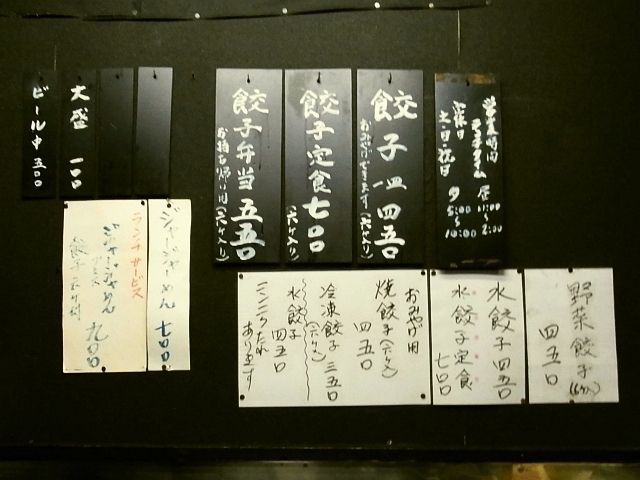 営業時間
ランチタイム
昼
11:00
2:00
夕
5:00
〜
10:00
定休日
土・日・祝日
餃子 一皿 四五〇
おみやげできます(六ヶ入り)
餃子定食 七〇〇
(六ヶ入り)
餃子弁当 五五〇
お持ち帰り用(六ヶ入り)
大盛 一〇〇
ビール中 五〇〇
野菜餃子(6ヶ入)
四五〇
水餃子 四五〇
水餃子定食
七〇〇
おみやげ用
焼餃子(六ケ入)
四五〇
冷凍餃子 三五〇
(六ケ入)
水餃子
四五〇
ニンニクたれ
あります
ジャージャーめん 七〇〇
ランチサービス
ジャージャーめん 九〇〇